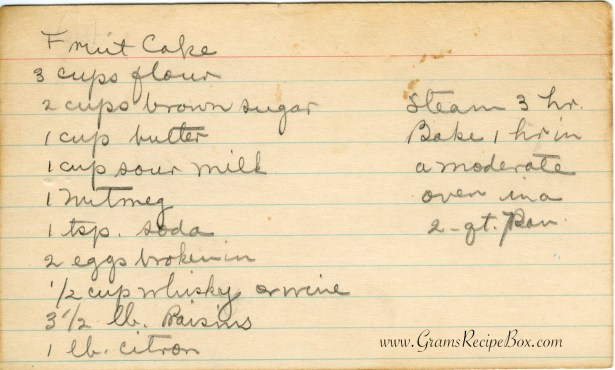 Fruit Cake
3 cups flour
2 cups brown sugar
1 cup butter
1 cup sour milk
1 Nutmeg
1 tsp. soda
2 eggs broken in
1/2 cup whisky or wine
3 1/2 lb. Raisins
1 lb. citron
Steam 3 hr.
Bake 1 hr in
a moderate
oven in a
2-qt. Pan.
www.GramsRecipeBox.com